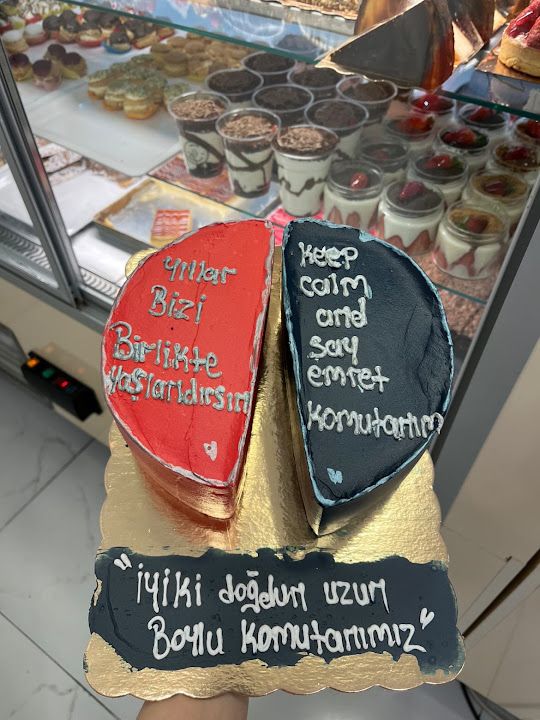 Yıllar
Bizi
Birlikte
Yaşlandırsın
Keep
calm
and
şay
emret
Komutanım
"İyiki doğdun uzun
Boylu Komutanımız"